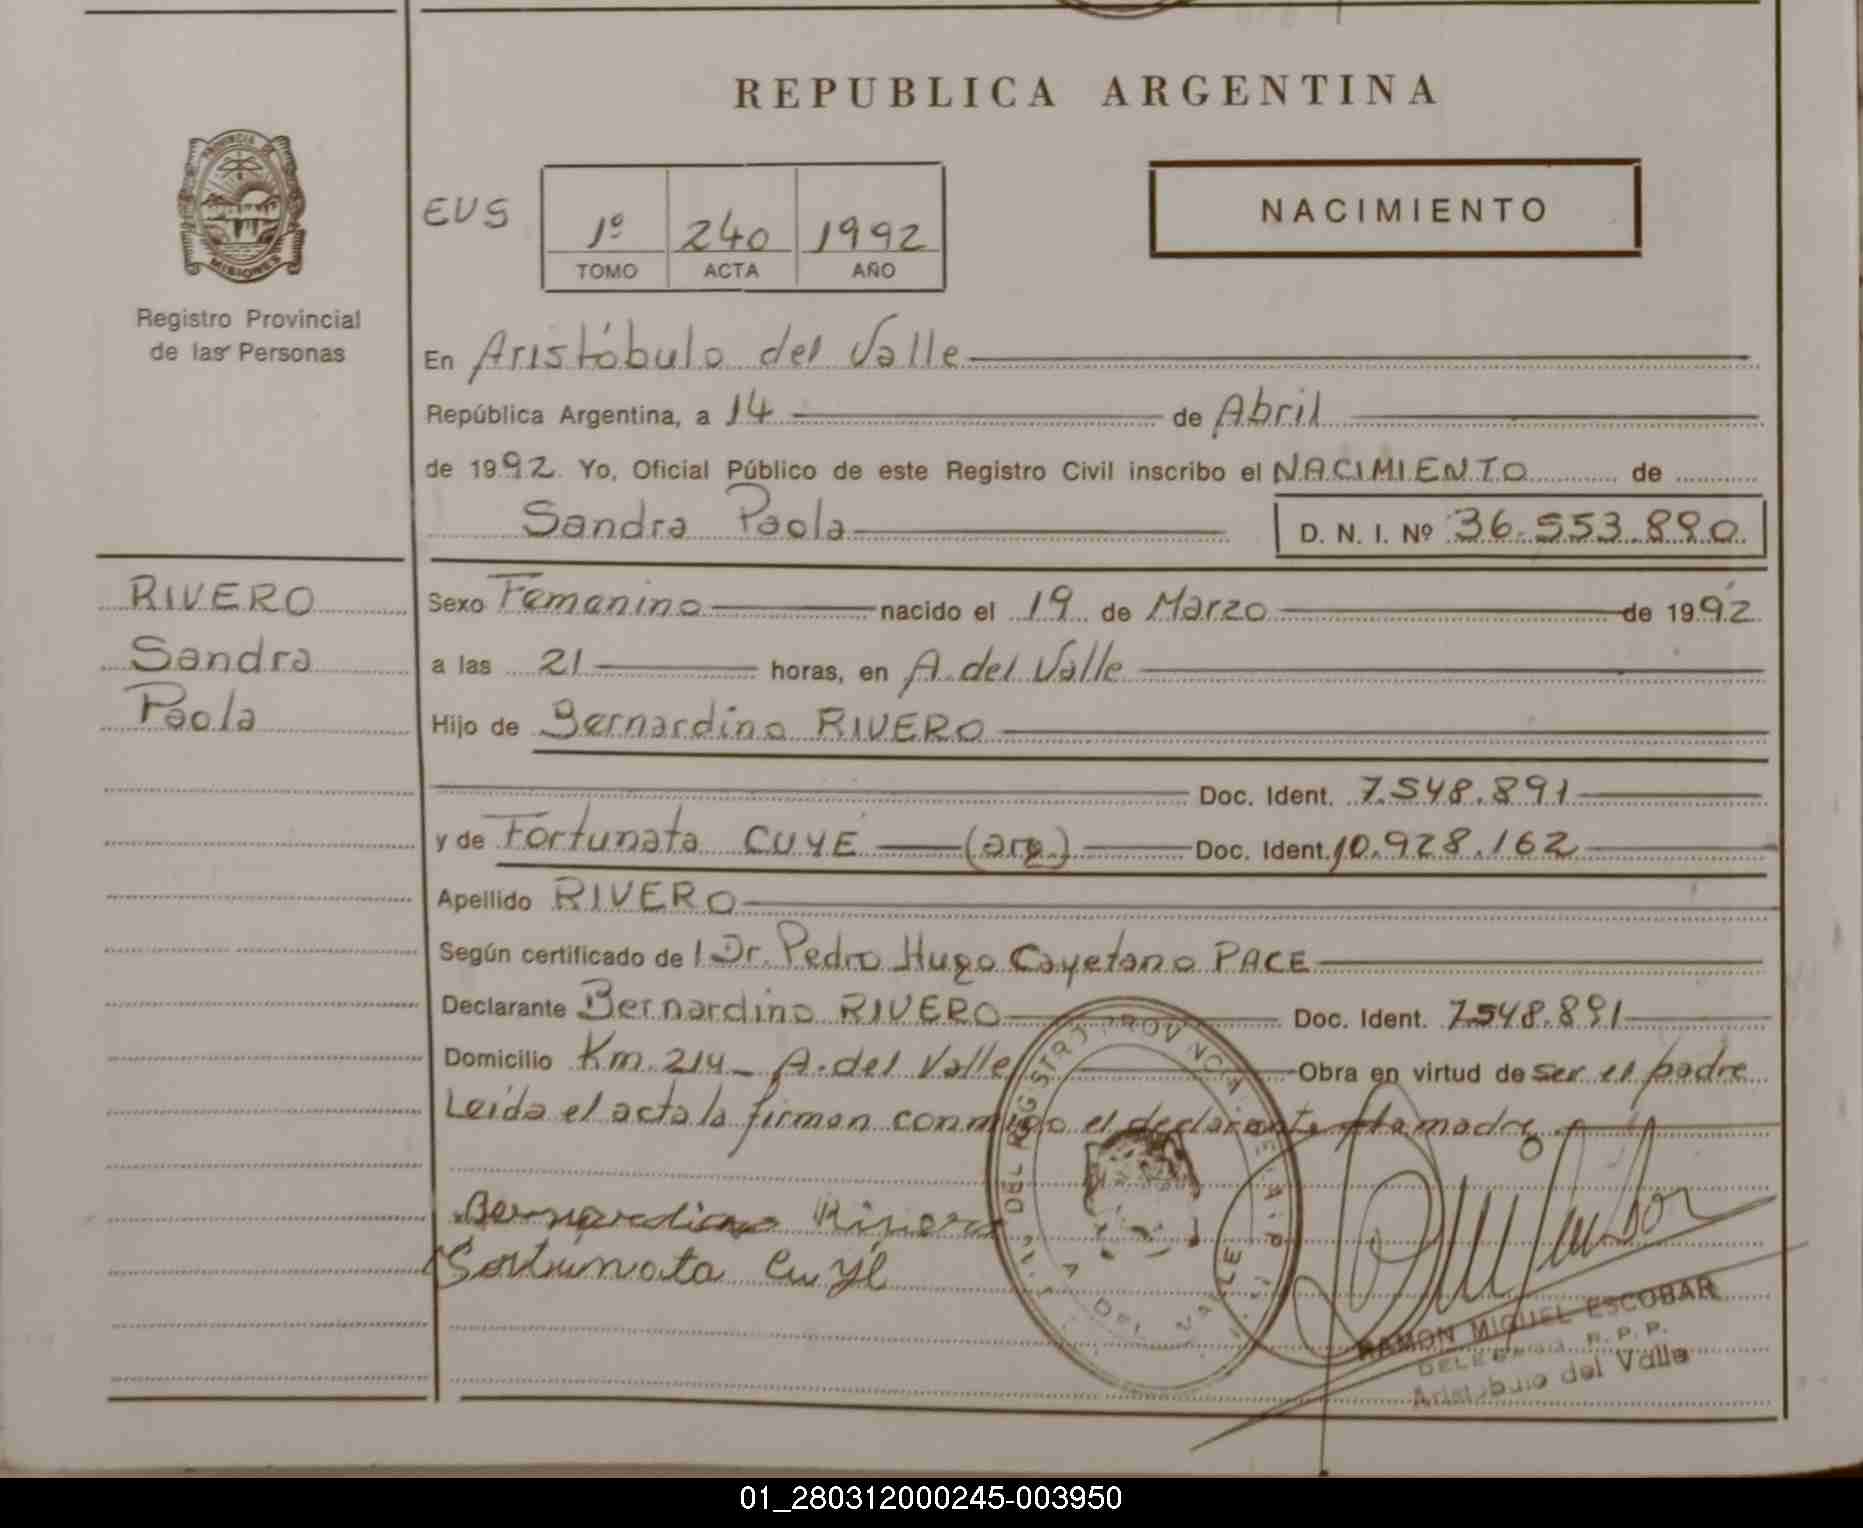 REPUBLICA ARGENTINA
PROVINCIA DE
MISIONES
Registro Provincial
de las Personas
EUS
1º 240 1992
TOMO ACTA AÑO
NACIMIENTO
En Aristóbulo del Valle
República Argentina, a 14 de Abril
de 1992. Yo, Oficial Público de este Registro Civil inscribo el NACIMIENTO de
Sandra Paola D. N. I. Nº 36.553.890
RIVERO
Sandra
Paola
Sexo Femenino nacido el 19 de Marzo de 1992
a las 21 horas, en A. del Valle
Hijo de Bernardino RIVERO
Doc. Ident. 7.548.891
y de Fortunata CUYÉ (arg.) Doc. Ident. 10.928.162
Apellido RIVERO
Según certificado de l Dr. Pedro Hugo Cayetano PACE
Declarante Bernardino RIVERO Doc. Ident. 7.548.891
Domicilio Km. 214 - A. del Valle Obra en virtud de ser el padre
Leída el acta la firman conmigo el declarante y la madre
Bernardino Rivero
Fortunata Cuyé
DEL REGISTRO PROVINCIAL DE LAS P
A. DEL VALLE
RAMON MIGUEL ESCOBAR
DELEGADO R. P. P.
Aristobulo del Valle
01_280312000245-003950